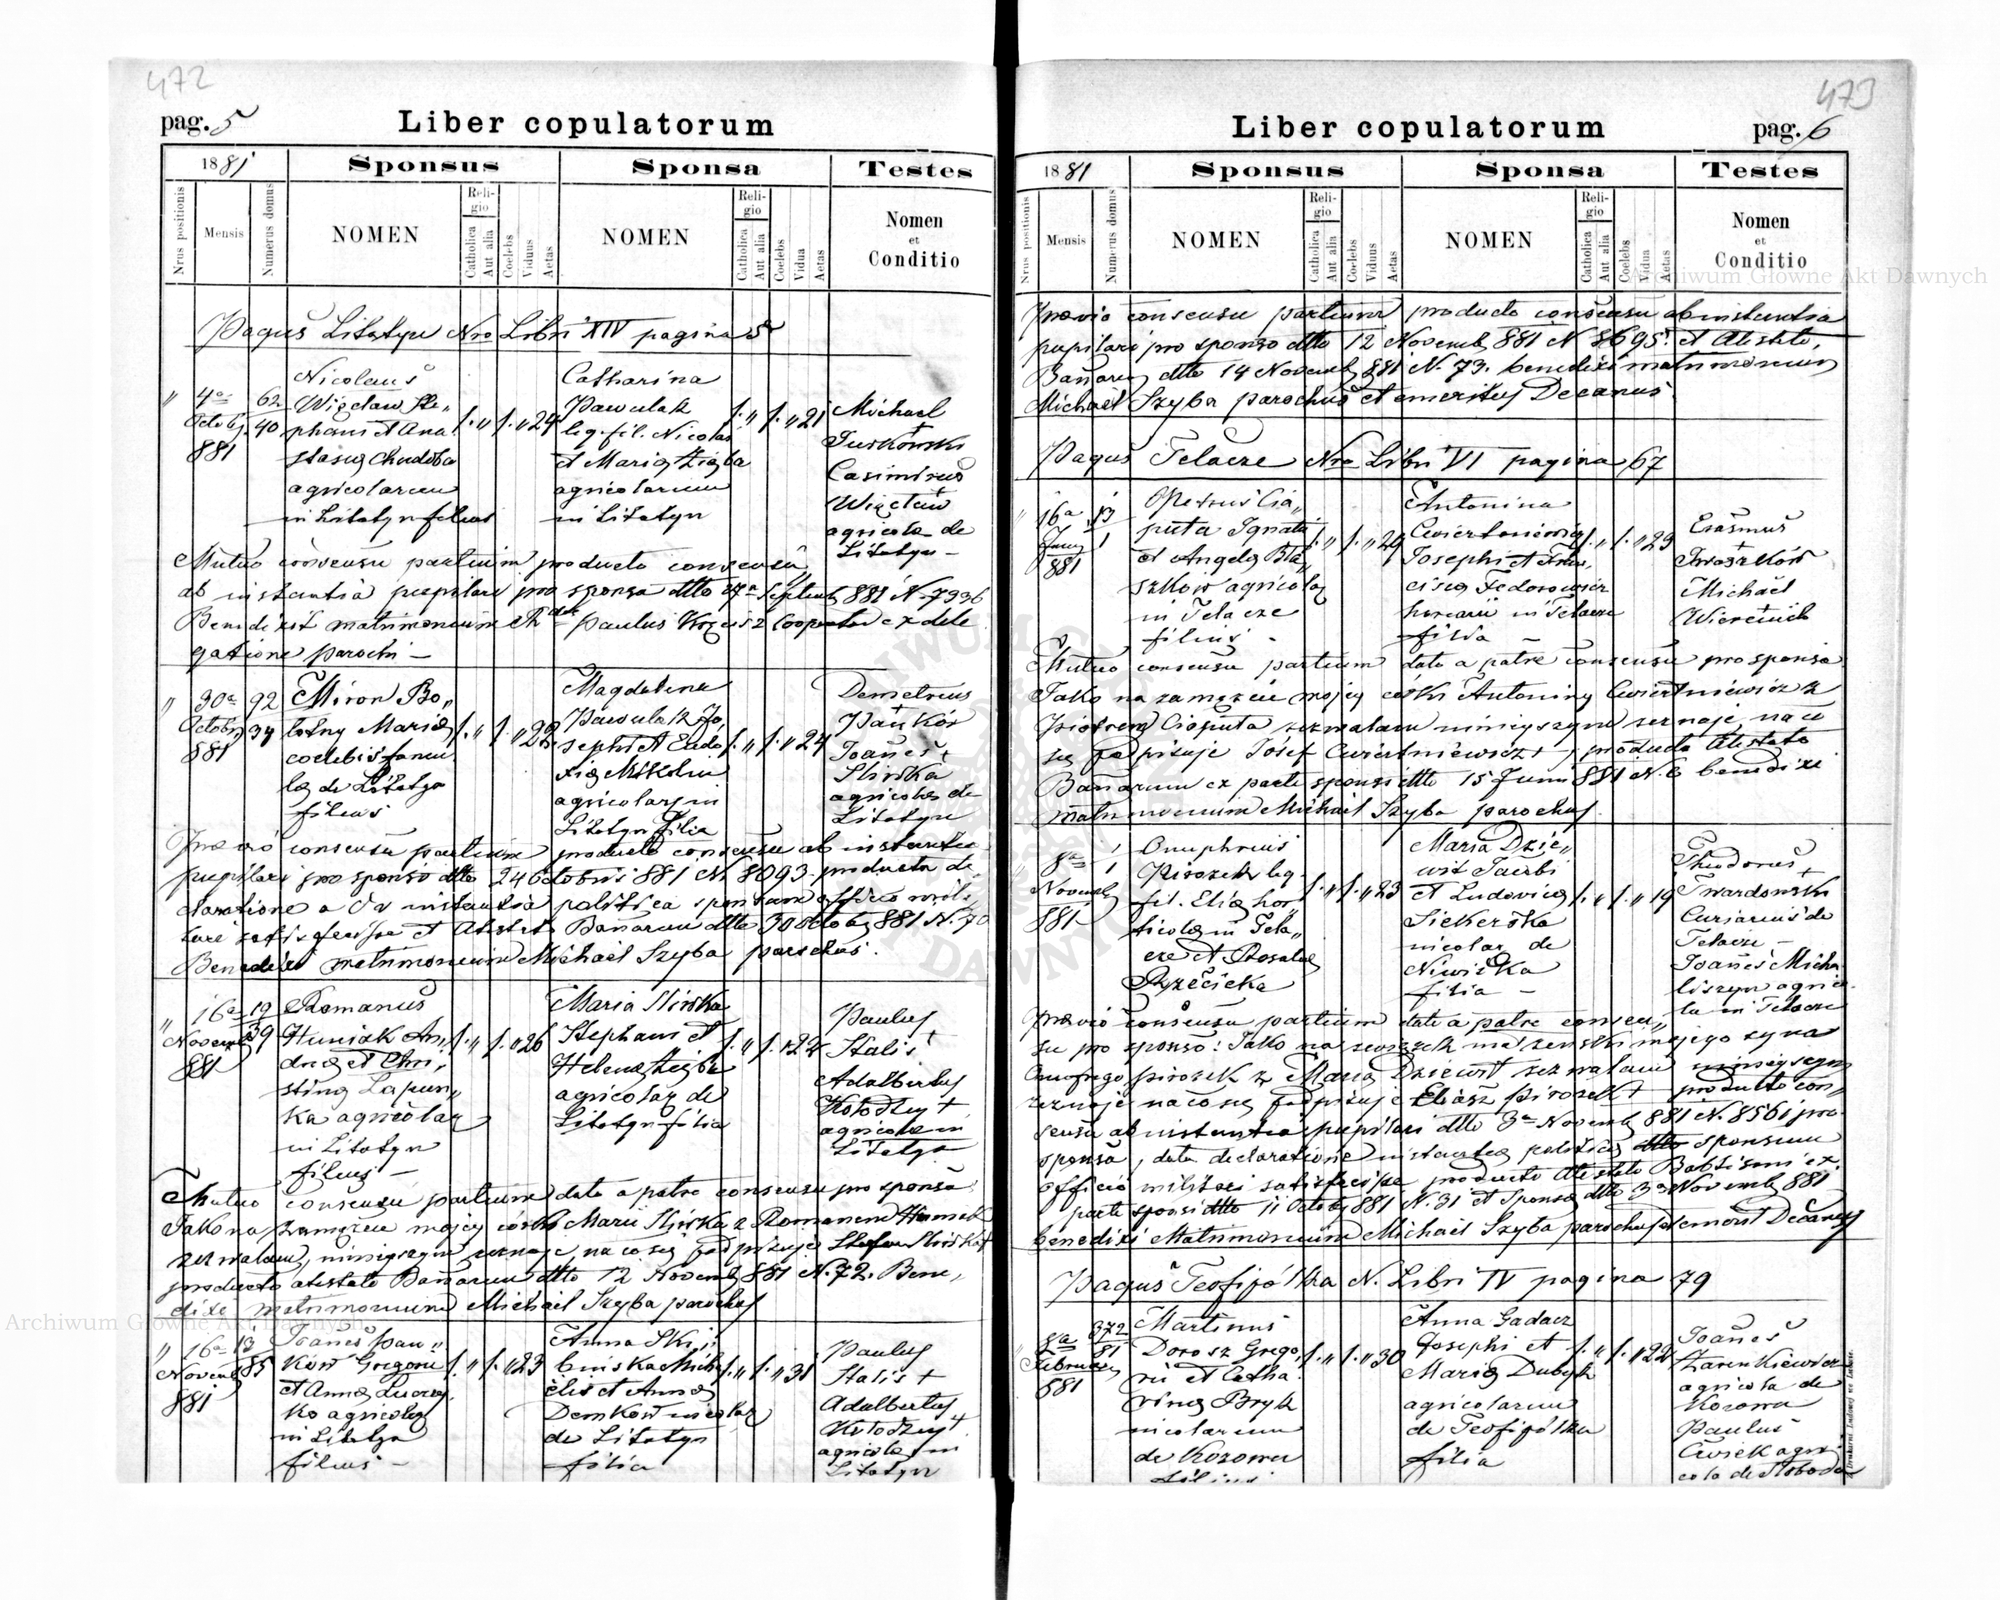 472
pag. 5
Liber copulatorum
1881
Sponsus
Sponsa
Testes
Nrus positionis
Mensis
Numerus domus
NOMEN
Religio
Catholica
Aut alia
Coelebs
Viduus
Aetas
NOMEN
Religio
Catholica
Aut alia
Coelebs
Vidua
Aetas
Nomen
et
Conditio
Pagus Litatyn Nro Libri XIV pagina 5
4a
Octob
881
62
40
Nicolaus
Więcław Ste„
phani et Ana
stasiæ Chudoba
agricolarum
in Litatyn filius
1. „ 1. „ 24
Catharina
Pawulak
leg. fil. Nicolai
et Mariæ Zięba
agricolarum
in Litatyn
1. „ 1. „ 21
Michael
+
Turkowski
Casimirus
Więcław
agricolæ de
Litatyn –
Mutuo consensu partium producto consensu
ab instantia pupilari pro sponsa dtto 27a Septemb 881 N 7936
Benedixit matrimonium Paulus Cooperator ex dele
gatione parochi –
30a
Octobr
881
92
34
Miron Bo„
lotny Mariæ
coelebis famu
læ de Litatyn
filius
1. „ 1. „ 22
Magdalena
Pawulak Jo„
sephi et Eudo
xiæ
agricolar in
Litatyn filia
1. „ 1. „ 24
Demetrius
+
Pańków
Joannes +
Sliwka
agricolæ de
Litatyn
Prævio consensu partium producto consensu ab instantia
pupilari pro sponso dtto 24 Octobris 881 N 8093. producta de„
claratione a instantia politica sponsum officio mili„
tari satisfecisse et Atestat Bannorum dtto 30 Octob 881 N. 70
Benedixi matrimonium Michael Szyba parochus.
16a
Novemb
881
19
39
Romanus
Huniak An„
dreæ et Chri„
stinæ Lapun„
ka agricolar
in Litatyn
filius –
1. „ 1. „ 26
Maria Sliwka
Stephani et
Helenæ Zięba
agricolar de
Litatyn filia
1. „ 1. „ 22
Paulus
+
Stalis
Adalbertus
Kołodzey +
agricolæ in
Litatyn
Mutuo consensu partium dato a patre consensu pro sponsa
Jako na zamęzcie mojej córki Marii Sliwka z Romanem Huniak
zezwalam, niniejszym zeznaję, na co się podpisuję Stefan Sliwka +
producto atestato Bannorum dtto 12 Novemb 881 N. 72. Bene„
dixi matrimonium Michael Szyba parochus
16a
Novemb
881
13
85
Joannes Pań„
ków Gregorii
et Annæ
ko agricolar
in Litatyn
filius –
1. „ 1. „ 23
Anna Ski„
bińska Micha
elis et Annæ
Demków inicolar
de Litatyn
filia
1. „ 1. „ 31
Paulus
Stalis +
Adalbertus
Kołodzey +
agricolæ in
Litatyn
473
Liber copulatorum
pag. 6
1881
Sponsus
Sponsa
Testes
Nrus positionis
Mensis
Numerus domus
NOMEN
Religio
Catholica
Aut alia
Coelebs
Viduus
Aetas
NOMEN
Religio
Catholica
Aut alia
Coelebs
Vidua
Aetas
Nomen
et
Conditio
Prævio consensu partium producto consensu ab instantia
pupilari pro sponso dtto 12 Novemb 881 N 8695. et Atestto,
Bannorum dtto 14 Novemb 881 N. 73. benedixi matrimonium
Michael Szyba parochus et emeritus Decanus
Pagus Telacze Nro Libri VI pagina 67
16a
Junii
881
13
1
Petrus Cia„
puta Ignatii
et Angelæ Bła„
szków agricolar
in Telacze
filius –
1. „ 1. „ 24
Antonina
Cwiertniewicz
Josephi et Fran„
ciscæ Fedorowicz
in Telacze
filia –
1. „ 1. „ 23
Erasmus
+
Iwaszków
Michael
+
Wierciuch
Mutuo consensu partium dato a patre consensu pro sponsa
Jako na zamęzcie mojej córki Antoniny Cwiertniewicz z
Piotrem Ciaputa zezwalam niniejszym zeznaję, na co
się podpisuję Josef Cwiertniewicz + producto Atestato
Bannorum ex parte sponsi dtto 15 Junii 881 N. 6 benedixi
matrimonium Michael Szyba parochus
8a
Novemb
881
1
1
Onuphrius
Pirozek leg.
fil. Eliæ hor„
ticolæ in Tela„
cze et Rosaliæ
Rzeczicka
1. „ 1. „ 23
Maria Dzie„
wit Jacobi
et Ludovicæ
Siekerska
inicolar de
Niwiska
filia –
1. „ 1. „ 19
Theodorus
+
Twardowski
de
Telacze –
Joannes Micha
liszyn agrico
la in Telacze
Prævio consensu partium dato a patre consen„
su pro sponso: Jako na związek małżeński mojego syna
Onufrego Pirozek z Marią Dziewit zezwalam niniejszym
zeznaję na co się podpisuję Eliasz Pirozek + producto con„
sensu ab instantia pupilari dtto 3a Novemb 881 N. 8561 pro
sponsa, data declaratione instantiæ politicæ sponsum
officio militari satisfecisse producto Atestato Babtismi ex
parte sponsi dtto 11 Octob 881 N. 31 et Sponsæ dtto 3a Novemb 881
benedixi Matrimonium Michael Szyba parochus et emerit Decanus
Pagus Teofipólka N. Libri IV pagina 79
8a
Februar
881
372
81
Martinus
Dorosz Grego„
rii et Catha„
rinæ Bryk
inicolarum
de Kozowa
filius
1. „ 1. „ 30
Anna Gadacz
Josephi et
Mariæ Dubyk
agricolarum
de Teofipólka
filia
1. „ 1. „ 22
Joannes
Zarenkiewicz
agricola de
Kozowa
Paulus
Cwiek agri
cola de Słoboda
Archiwum Główne Akt Dawnych
Archiwum Główne Akt Dawnych